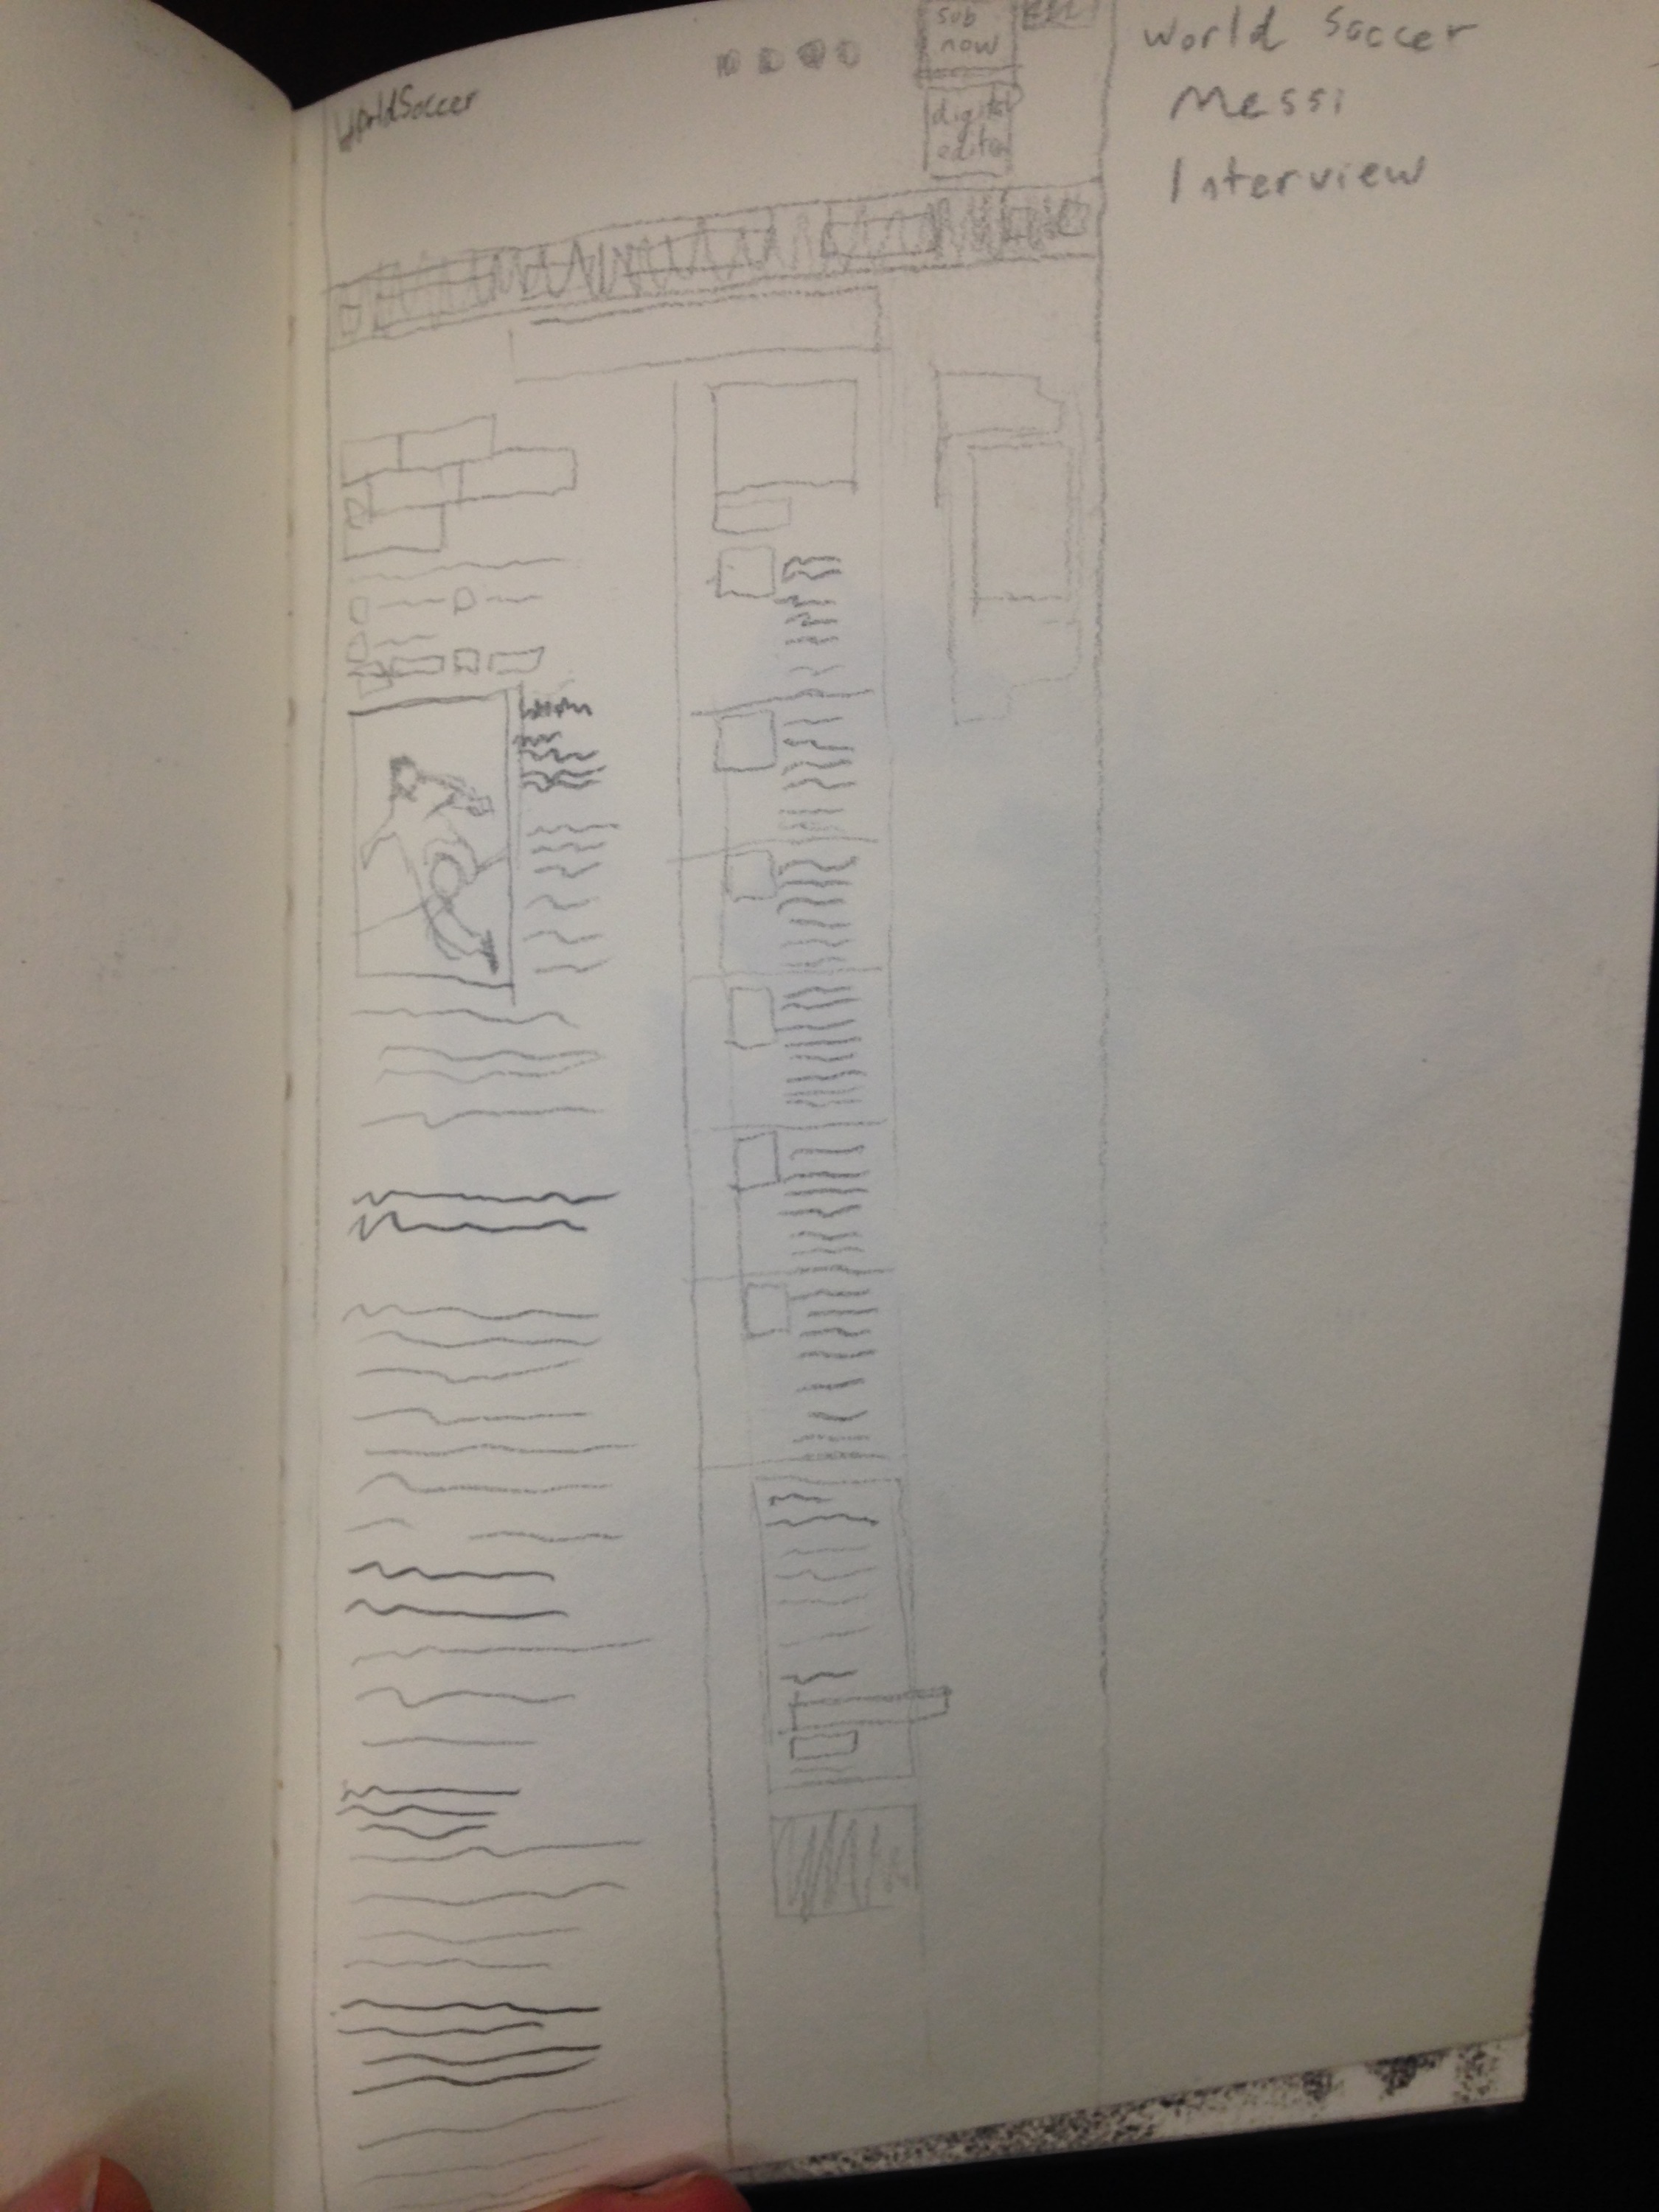 World Soccer
sub
now
digital
World Soccer
Messi
Interview